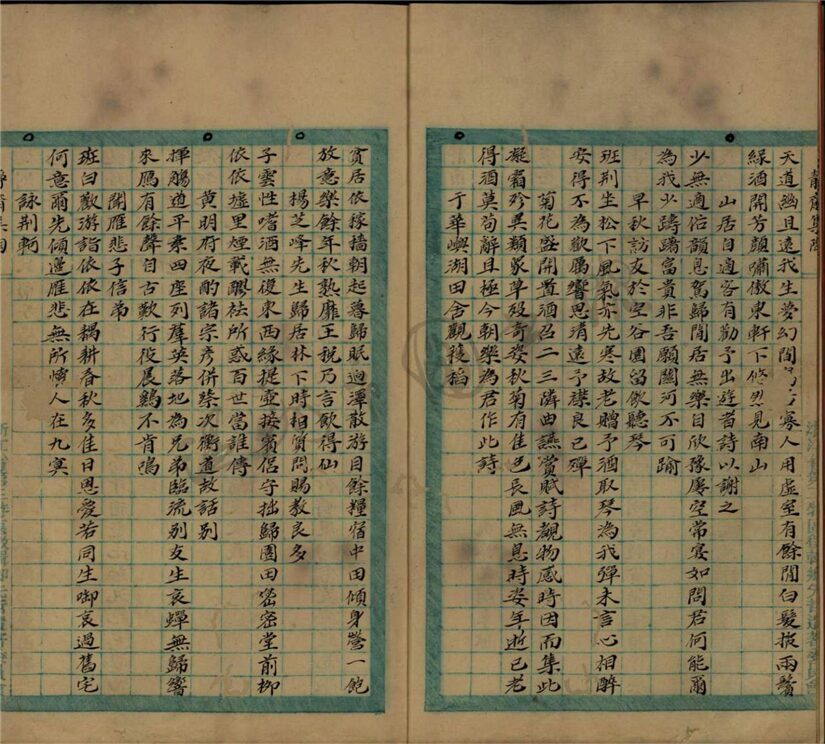 天道幽且遠我生夢幻間寡人用虛室有餘閒白髮披兩鬢
綠酒開芳顏嘯傲東軒下悠然見南山
山居自適客有勸予出遊者詩以謝之
少無適俗韻息駕歸閒居無樂自欣豫屢空常晏如問君何能爾
為我少躊躇富貴非吾願關河不可踰
早秋訪友於空谷園留飲聽琴
班荊坐松下風氣亦先寒故老贈予酒取琴為我彈未言心相醉
安得不為歡厲響思清遠予襟良已殫
菊花盛開置酒召二三隣曲讌賞賦詩觀物感時因而集此
凝霜殄異類眾草沒奇姿秋菊有佳色長風無息時姿年逝已老
得酒莫苟辭且極今朝樂為君作此詩
于華嶼湖田舍觀穫稻
貧居依稼墻朝起暮歸眠迥潭散游目餘糧宿中田傾身營一飽
放意樂餘年秋熟靡王稅乃言飲得仙
楊芝峰先生歸居林下時相質問賜教良多
子雲性嗜酒無復東西緣提壺接賓侶守拙歸園田密密堂前柳
依依墟里煙載醪祛所惑百世當誰傳
黃明府夜酌諸宗彥併次衢道故話別
揮觴道平素四座列羣英落地為兄弟臨流別友生哀蟬無歸響
來雁有餘聲自古歎行役晨鷄不肯鳴
聞雁悲子信弟
班白歡游詣依依在耦耕春秋多佳日恩愛若同生啣哀過舊宅
何意爾先傾邊雁悲無所懷人在九冥
詠荊軻